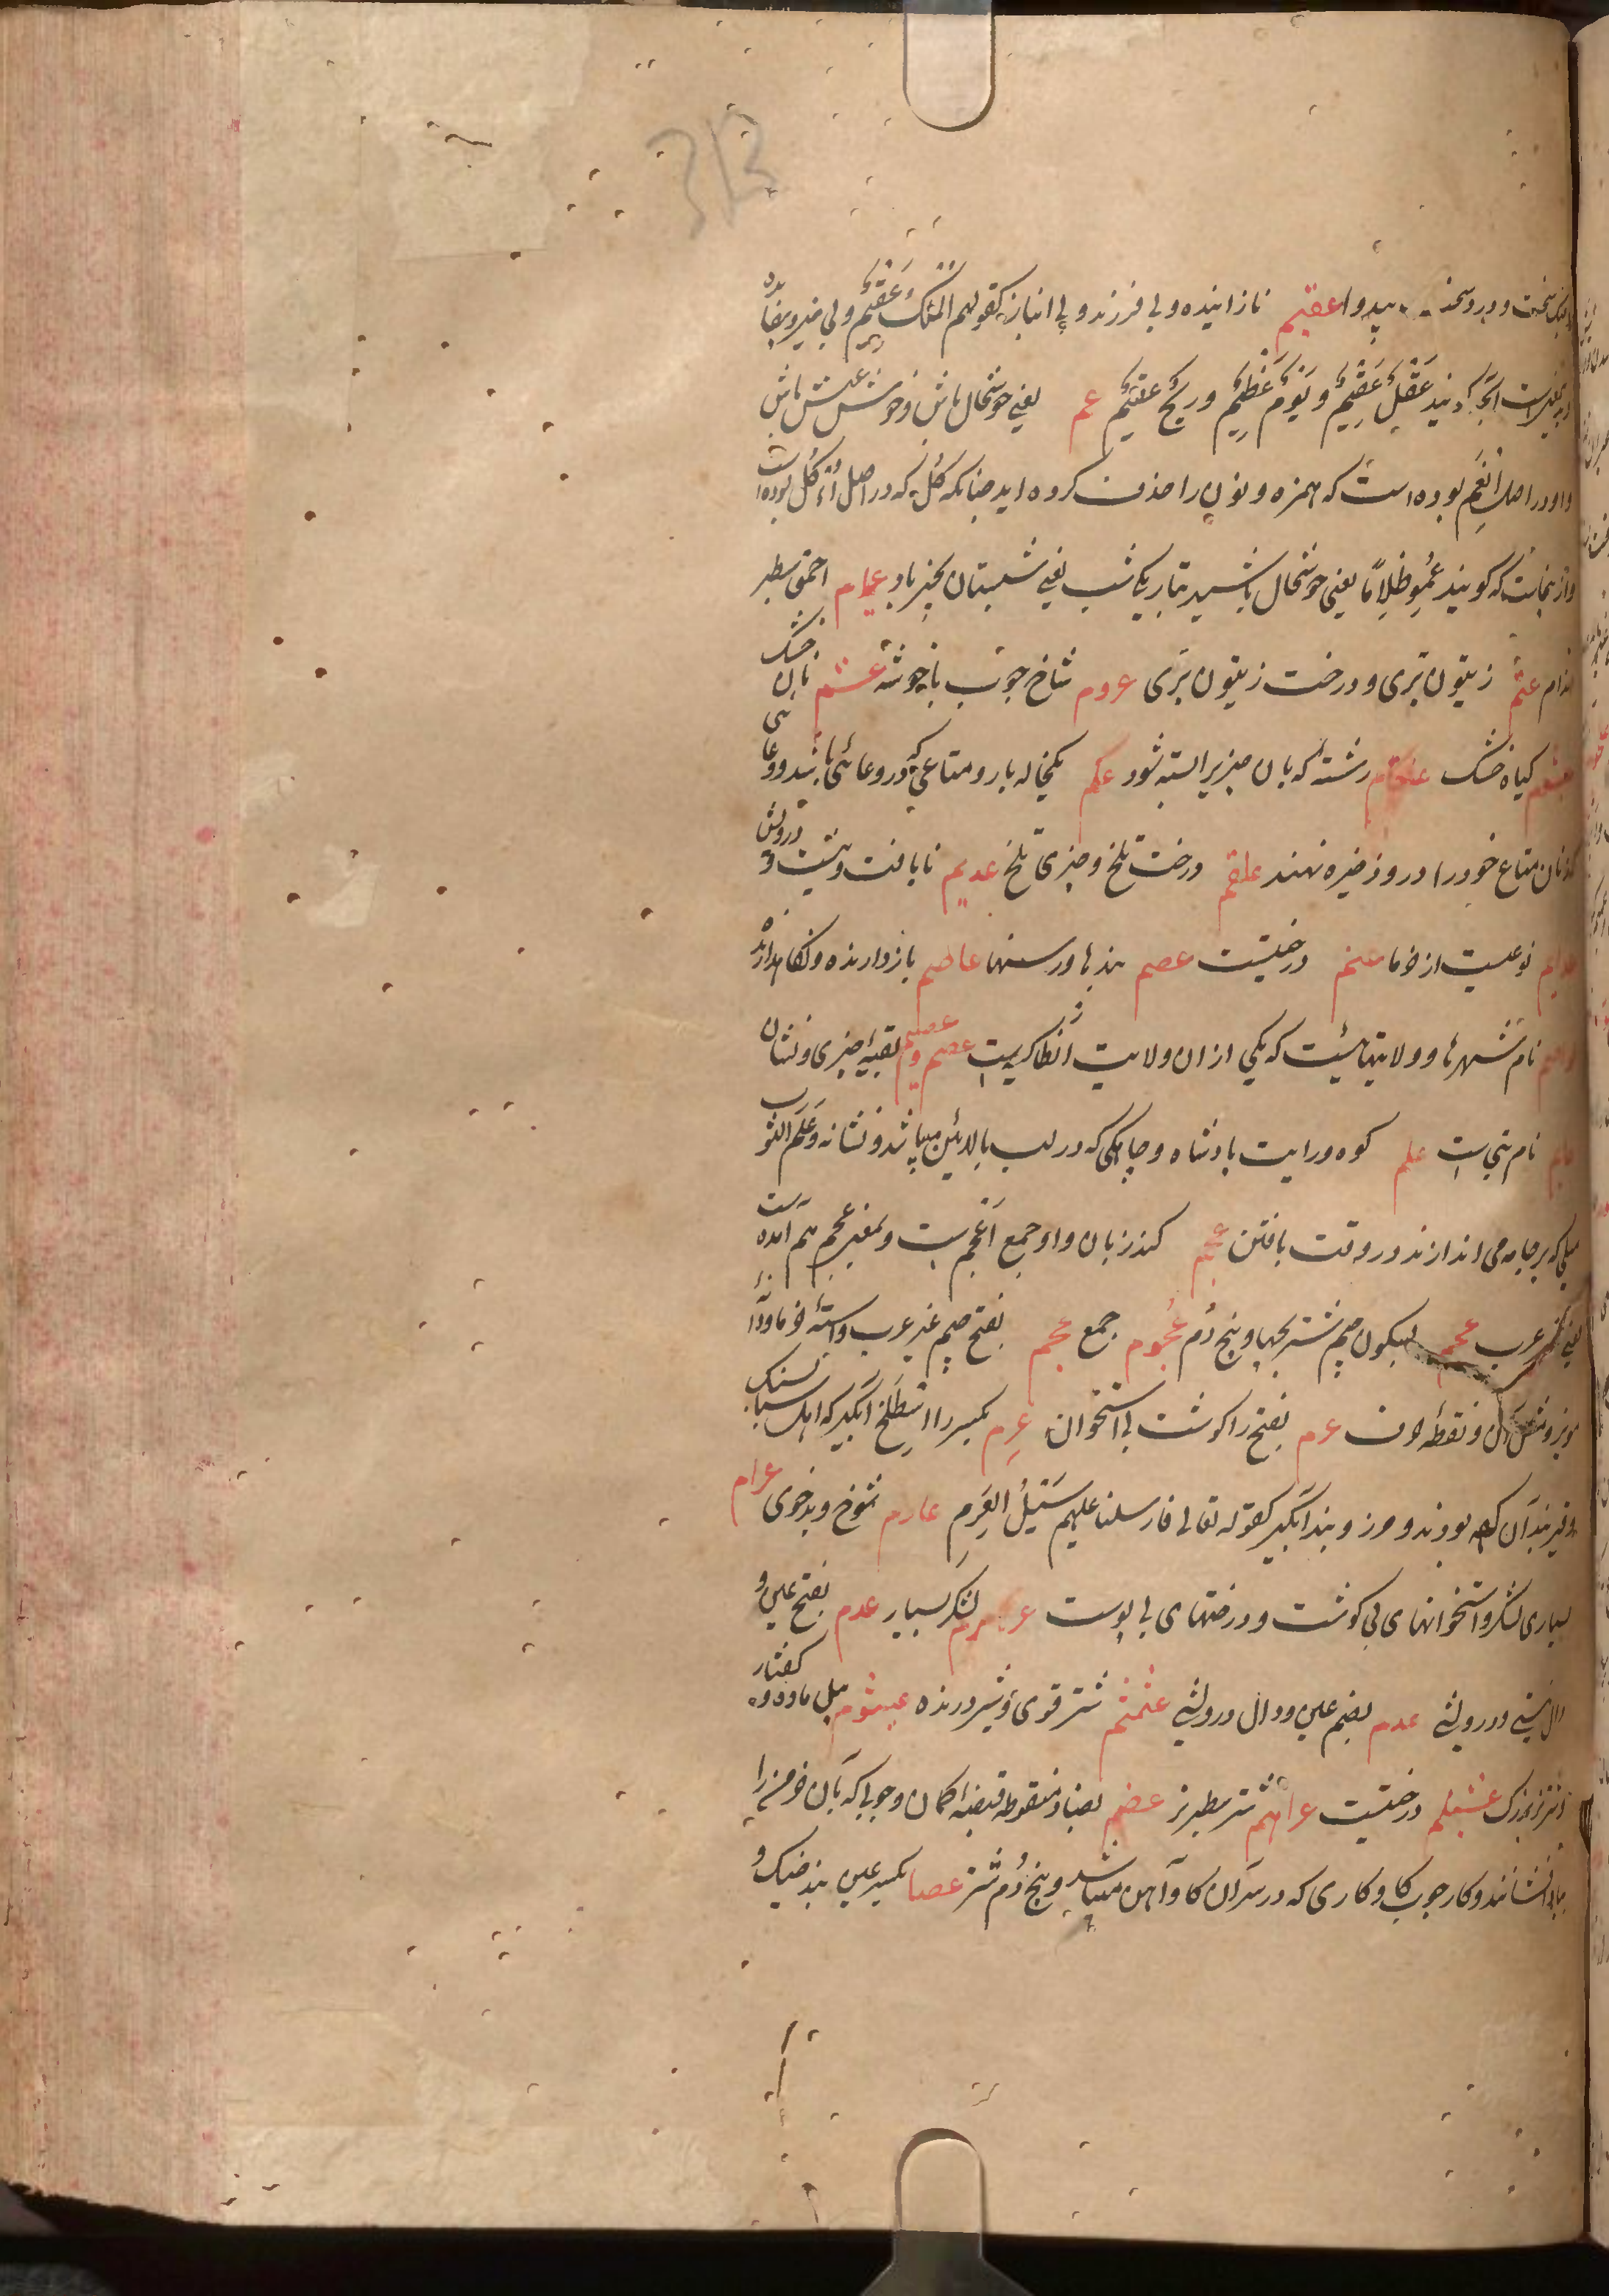 313
سخت و درد سخت بیدوا عقیم نازاینده و بی فرزند و بی انباز کقولهم الملک عقیم و بی خیر و بیفایده
گویند عقل عقیم و یوم عقیم و ریح عقیم عم یعنی خوشحال باش و خوش عیش باش
و او در اصل انعم بوده است که همزه و نون را حذف کرده اند چنانکه کل که در اصل اؤکل بوده است
و از ینجاست که گویند عموا ظلاما یعنی خوشحال باشید بتاریکی شب یعنی شبستان بخیر باد عیام احمق سطبر
اندام عتم زیتون بری و درخت زیتون بری عردم شاخ چوب با خوشه عشم نان خشک
عیشوم گیاه خشک رشته که بان چیزیرا بسته شود عکم یکخاله بار و متاعی که در وعائی باشد و وعائی
که زنان متاع خود را درو ذخیره نهند علقم درخت تلخ و چیزی تلخ عدیم نایافت و نیست و درویش
نوعیست از خرما عنم درختیست عصم بندها و رسنها عاصم بازدارنده و نگاهدارنده
عواصم نام شهرها و ولایتهائیست که یکی از ان ولایت انطاکیه است عصم و عصیم بقیه چیزی و نشان
نام بتی است علم کوه و رایت پادشاه و چاکی که در لب بالایین میباشد و نشانه و علم الثوب
که بر جامه می اندازند در وقت بافتن عجم کندزبان و او جمع اعجم است و بمعنی عجم هم آمده است
یعنی غیر عرب عجم بسکون جیم شتر بچها و بیخ دم عجوم جمع عجم بفتح جیم غیر عرب و استه خرما و دانه
مویز و مثل آن و نقطه حرف عرم بفتح را گوشت بی استخوان عرم بکسر را اسطلخ آبگیر که اهل سبا بسنگ
و قیر بندان کرده بودند و مرز و بند آبگیر کقوله تعالی فارسلنا علیهم سیل العرم عارم شوخ و بدخوی عرام
بسیاری لشکر و استخوانهای بی گوشت و درختهای بی پوست عرمرم لشکر بسیار عدم بفتح عین و
دال نیستی و درویشی عدم بضم عین و دال درویشی عثمثم شتر قوی و شیر درنده عیثوم پیل ماده و کفتار
و شتر بزرگ درختیست عراهم شتر سطبر نر عضم بضاد منقوطه قبضه کمان و چوبی که بان خرمن را
بباد افشانند و کار چوب گاوکاری که در سر آن گاوآهن میباشد و بیخ دم شتر عصام بکسر عین بند خیک و